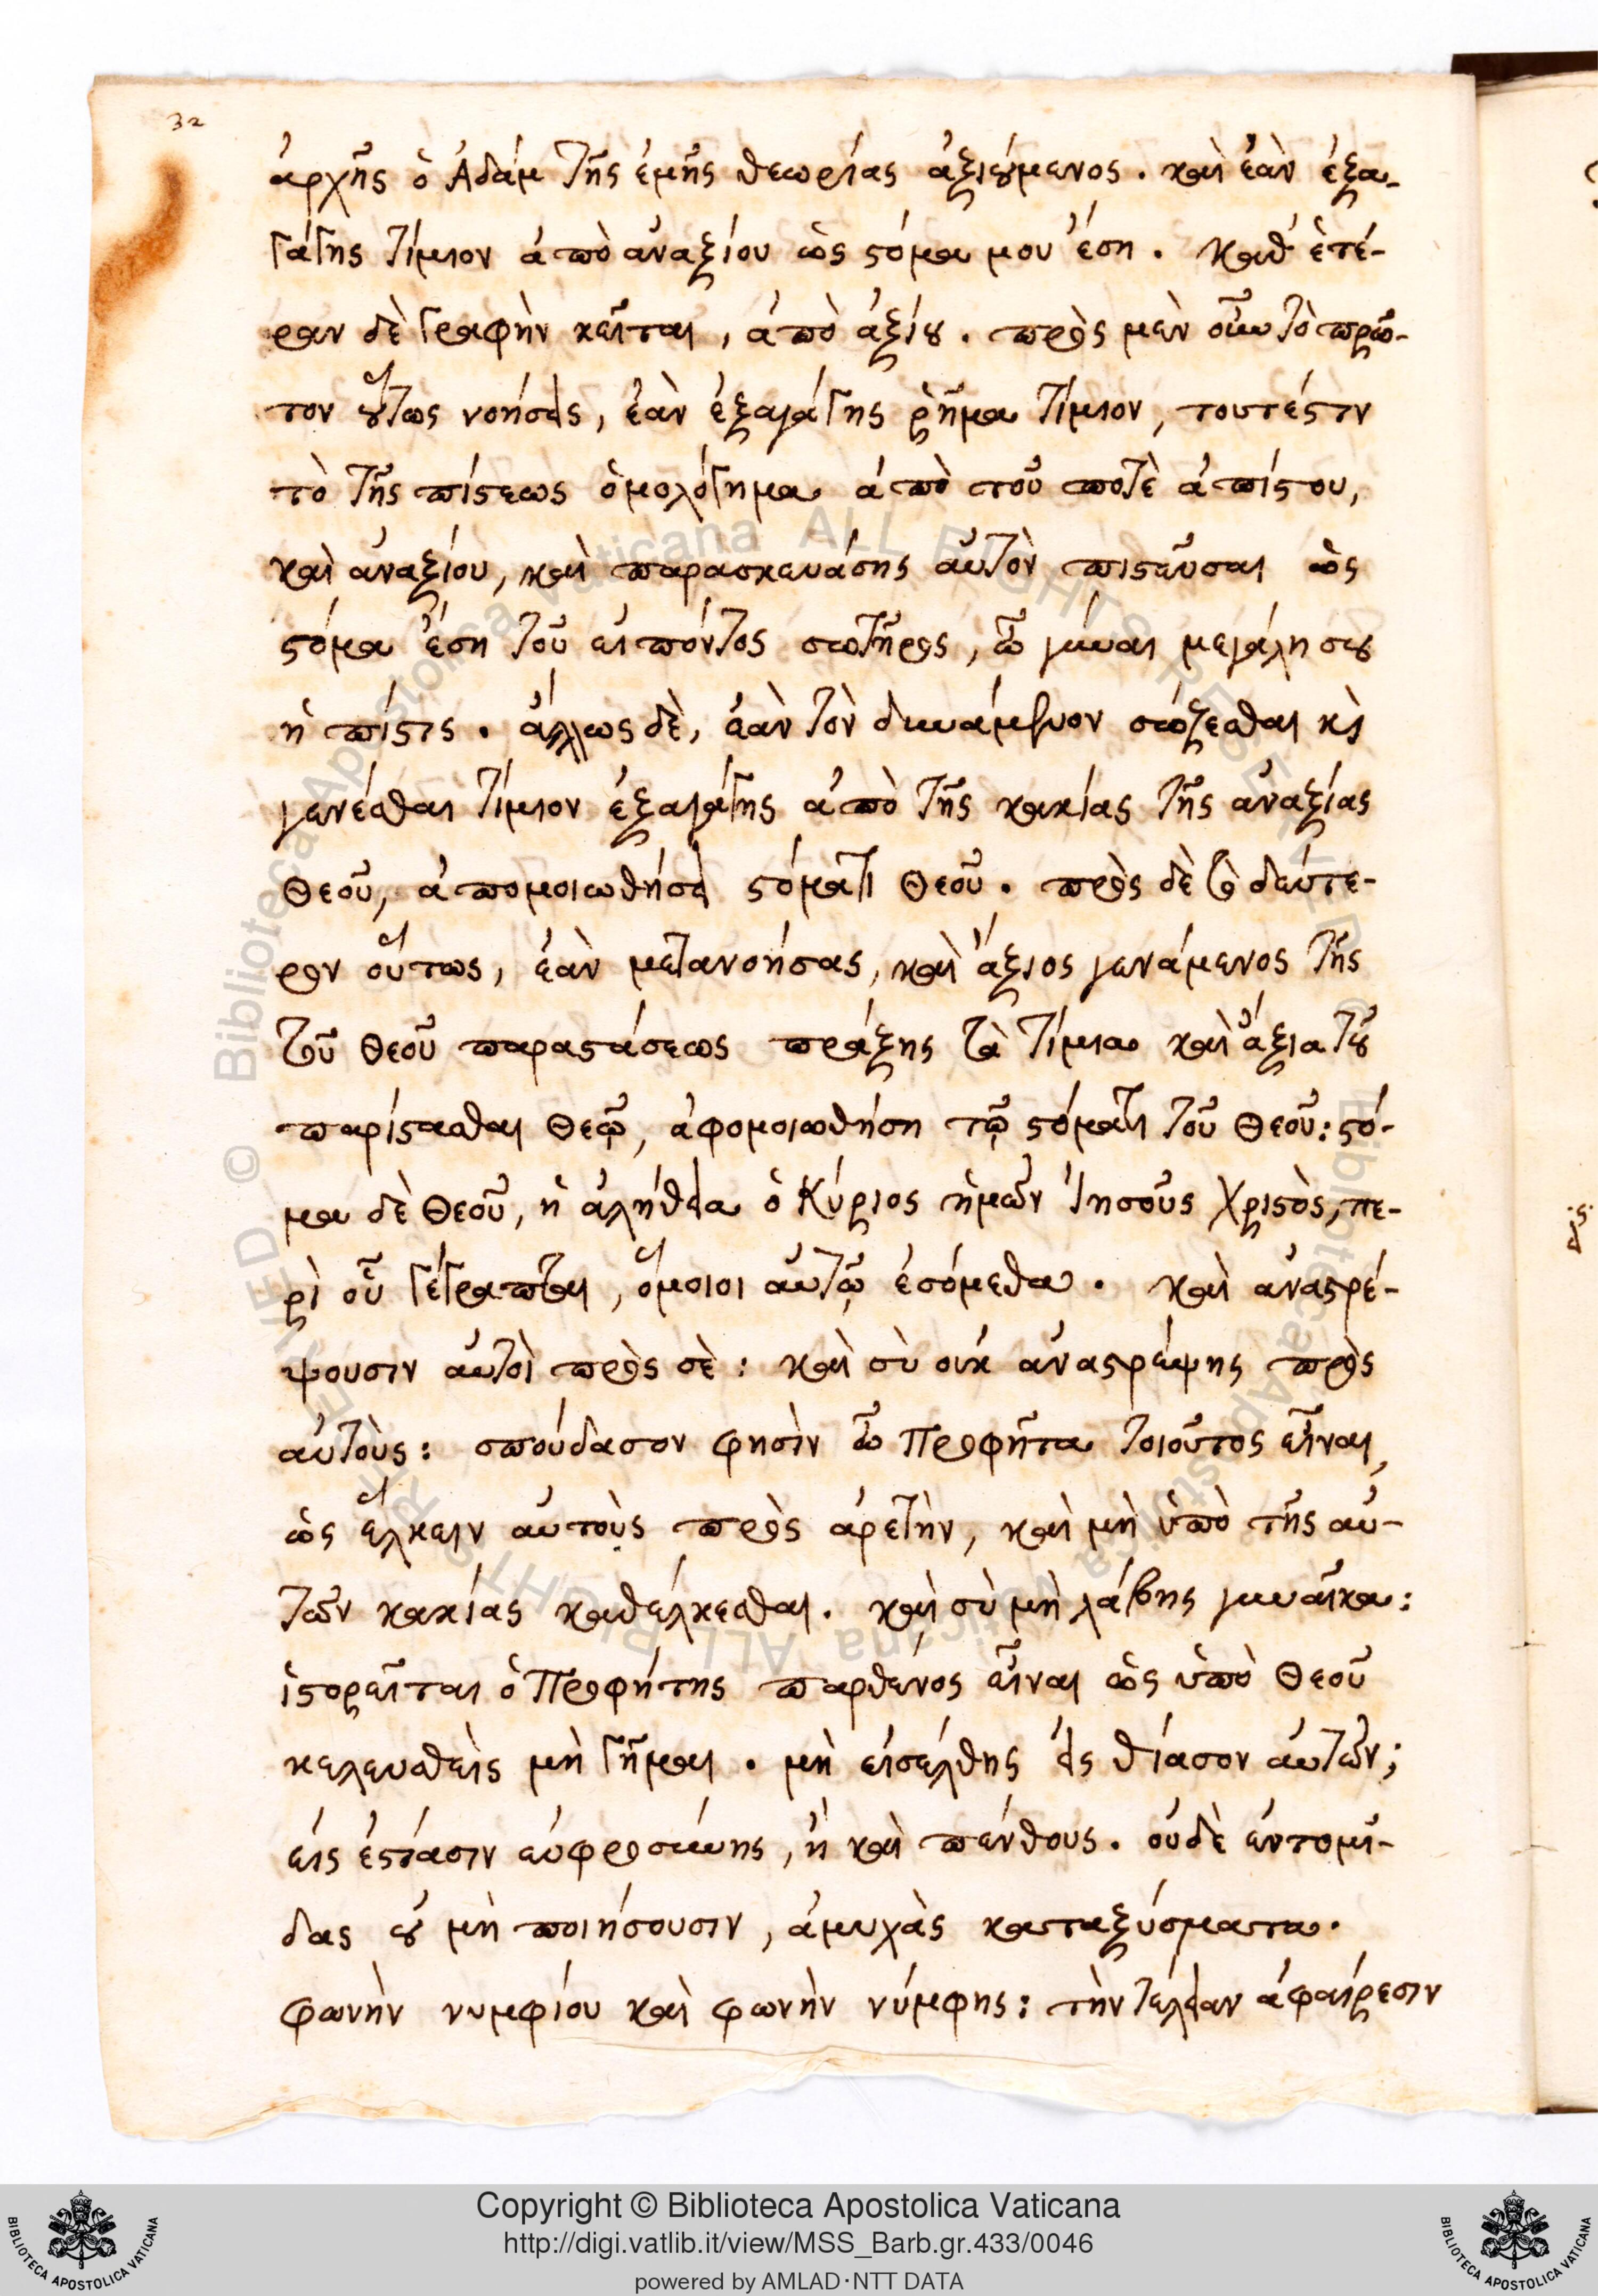 32
ἀρχῆς ὁ Ἀδάμ τῆς ἐμῆς θεωρίας ἀξιούμενος. καὶ ἐὰν ἐξα-
γάγῃς τίμιον ἀπὸ ἀναξίου ὡς στόμα μου ἔσῃ. καθ' ἑτέ-
ραν δὲ γραφὴν κεῖται, ἀπὸ ἀξίου. πρὸς μὲν οὖν τὸ πρῶ-
τον οὕτως νοήσεις, ἐὰν ἐξαγάγῃς ῥῆμα τίμιον, τουτέστιν
τὸ τῆς πίστεως ὁμολόγημα ἀπὸ τοῦ ποτὲ ἀπίστου,
καὶ ἀναξίου, καὶ παρασκευάσῃς αὐτὸν πιστεῦσαι ὡς
στόμα ἔσῃ τοῦ εἰπόντος σωτῆρος, ὦ γύναι μεγάλη σου
ἡ πίστις. ἄλλως δὲ, ἐὰν τὸν δυνάμενον σώζεσθαι καὶ
γενέσθαι τίμιον ἐξαγάγῃς ἀπὸ τῆς κακίας τῆς ἀναξίας
Θεοῦ, ἀπομοιωθήσει στόματι Θεοῦ. πρὸς δὲ τὸ δεύτε-
ρον οὕτως, ἐὰν μετανοήσας, καὶ ἄξιος γενάμενος τῆς
τοῦ Θεοῦ παραστάσεως πράξῃς τὰ τίμια καὶ ἄξια τοῦ
παρίστασθαι Θεῷ, ἀφομοιωθήσῃ τῷ στόματι τοῦ Θεοῦ: στό-
μα δὲ Θεοῦ, ἡ ἀλήθεια ὁ Κύριος ἡμῶν Ἰησοῦς Χριστὸς, πε-
ρὶ οὗ γέγραπται, ὅμοιοι αὐτῷ ἐσόμεθα. καὶ ἀναστρέ-
ψουσιν αὐτοὶ πρὸς σὲ: καὶ σὺ οὐκ ἀναστρέψῃς πρὸς
αὐτοὺς: σπούδασον φησὶν ὦ Προφῆτα τοιοῦτος εἶναι,
ὡς ἕλκειν αὐτοὺς πρὸς ἀρετὴν, καὶ μὴ ὑπὸ τῆς αὐ-
τῶν κακίας καθέλκεσθαι. καὶ σὺ μὴ λάβῃς γυναῖκα:
ἱστορεῖται ὁ Προφήτης παρθένος εἶναι ὡς ὑπὸ Θεοῦ
κελευσθεὶς μὴ γῆμαι. μὴ εἰσέλθῃς εἰς θίασον αὐτῶν;
εἰς ἑστίασιν εὐφροσύνης, ἢ καὶ πένθους. οὐδὲ ἐντομί-
δας οὐ μὴ ποιήσουσιν, ἀμυχὰς καταξύσματα.
φωνὴν νυμφίου καὶ φωνὴν νύμφης: τὴν τελείαν ἀφαίρεσιν
Copyright © Biblioteca Apostolica Vaticana
http://digi.vatlib.it/view/MSS_Barb.gr.433/0046
powered by AMLAD·NTT DATA
BIBLIOTECA APOSTOLICA VATICANA
BIBLIOTECA APOSTOLICA VATICANA